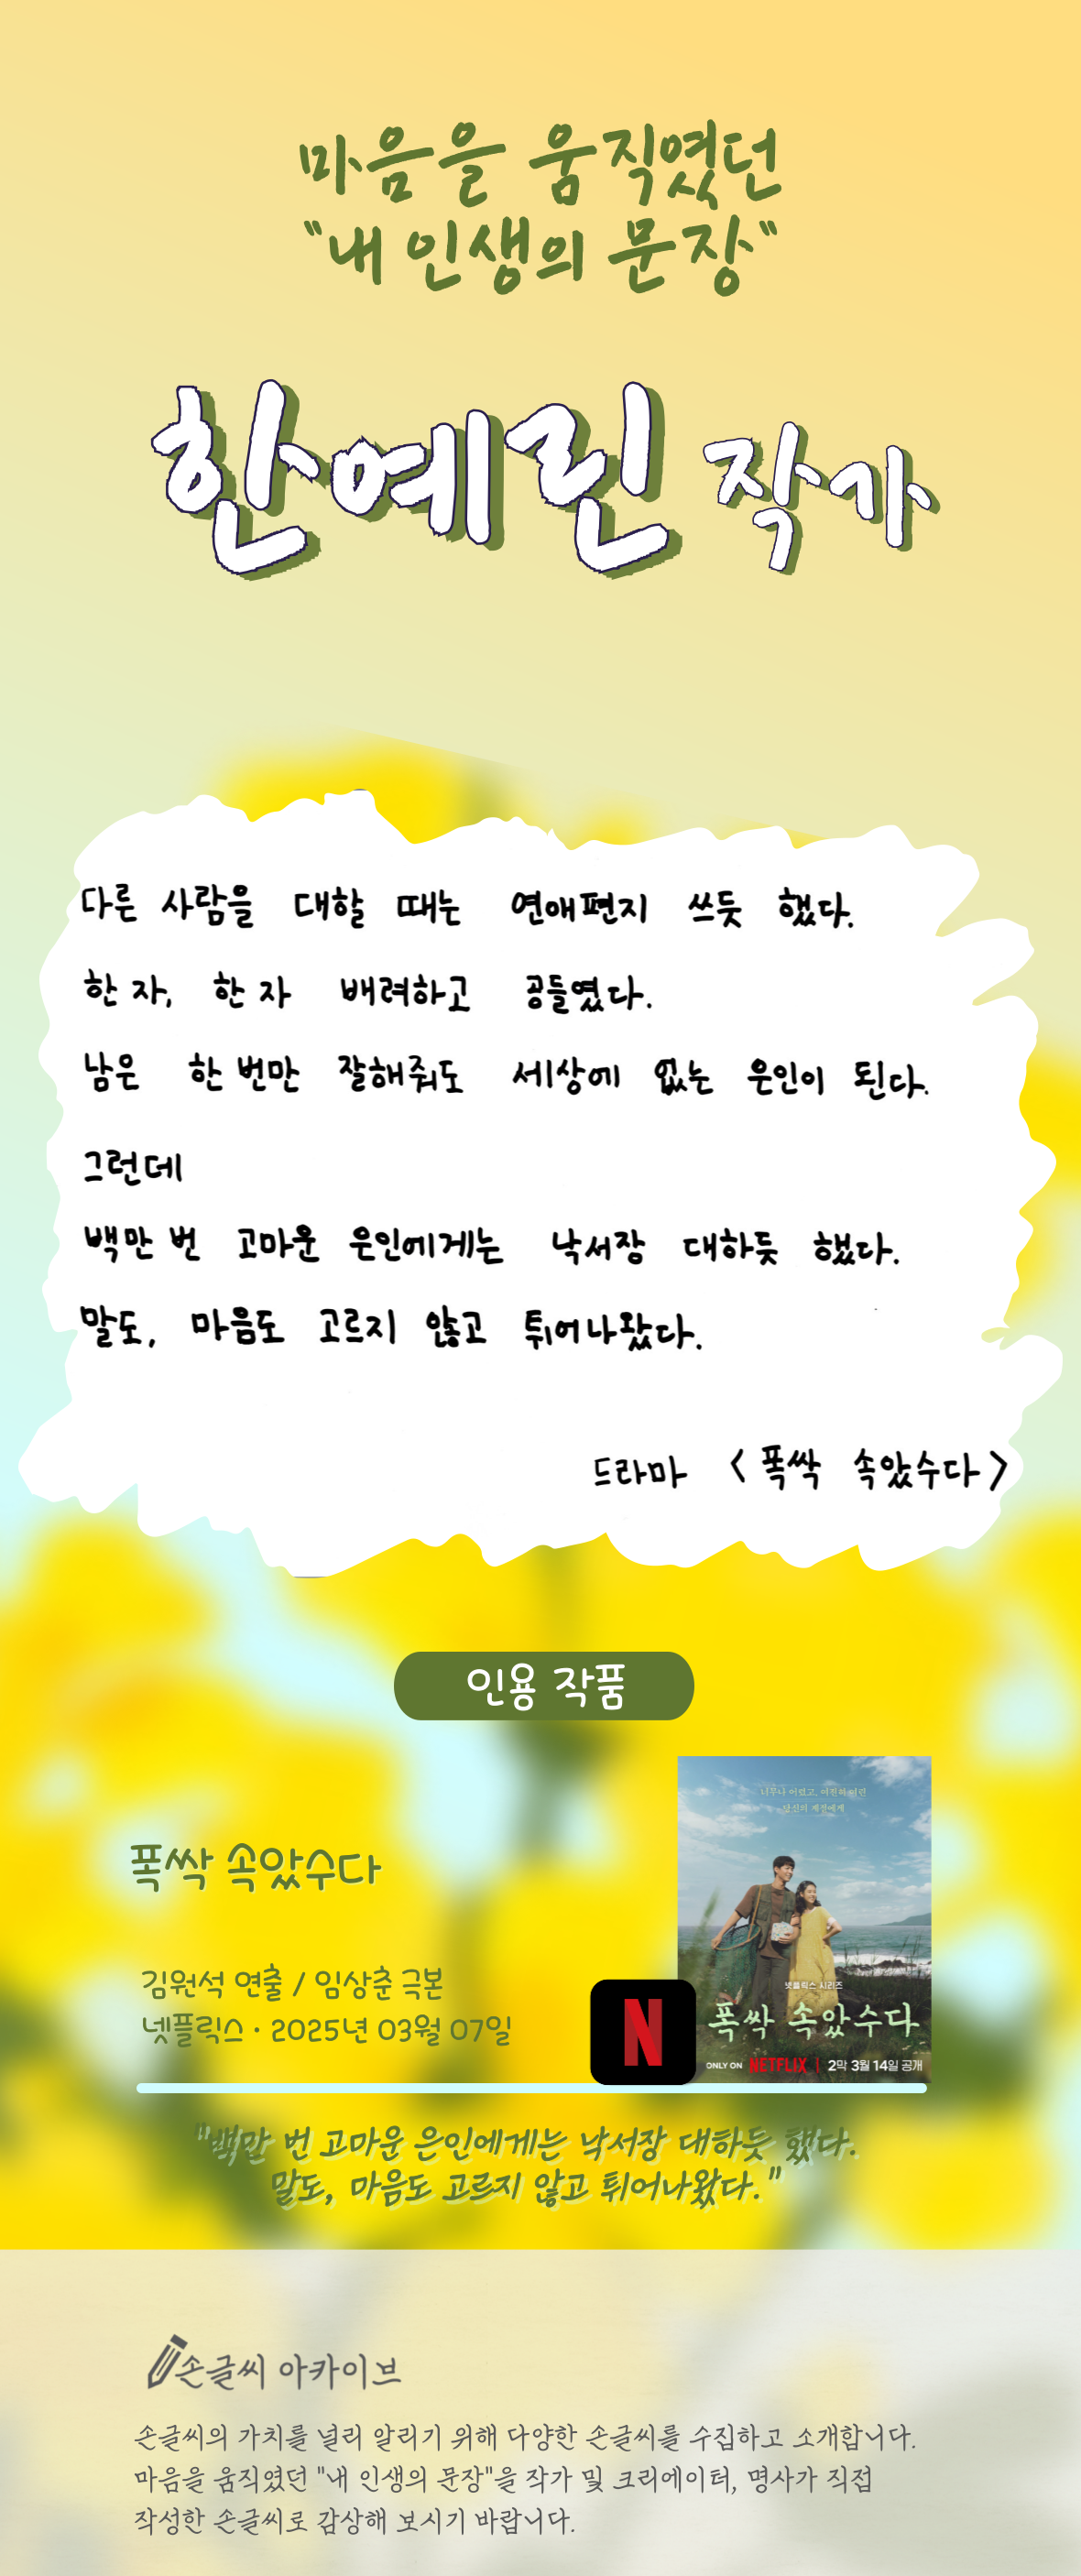 마음을 움직였던
"내 인생의 문장"
한예린 작가
다른 사람을 대할 때는 연애편지 쓰듯 했다.
한 자, 한 자 배려하고 공들였다.
남은 한 번만 잘해줘도 세상에 없는 은인이 된다.
그런데
백만 번 고마운 은인에게는 낙서장 대하듯 했다.
말도, 마음도 고르지 않고 튀어나왔다.
드라마 <폭싹 속았수다>
인용 작품
너무나 어렸고, 여전히 여린
당신의 계절에게
폭싹 속았수다
김원석 연출 / 임상춘 극본
넷플릭스 · 2025년 03월 07일
넷플릭스 시리즈
폭싹 속았수다
N
ONLY ON NETFLIX | 2막 3월 14일 공개
"백만 번 고마운 은인에게는 낙서장 대하듯 했다.
말도, 마음도 고르지 않고 튀어나왔다."
손글씨 아카이브
손글씨의 가치를 널리 알리기 위해 다양한 손글씨를 수집하고 소개합니다.
마음을 움직였던 "내 인생의 문장"을 작가 및 크리에이터, 명사가 직접
작성한 손글씨로 감상해 보시기 바랍니다.